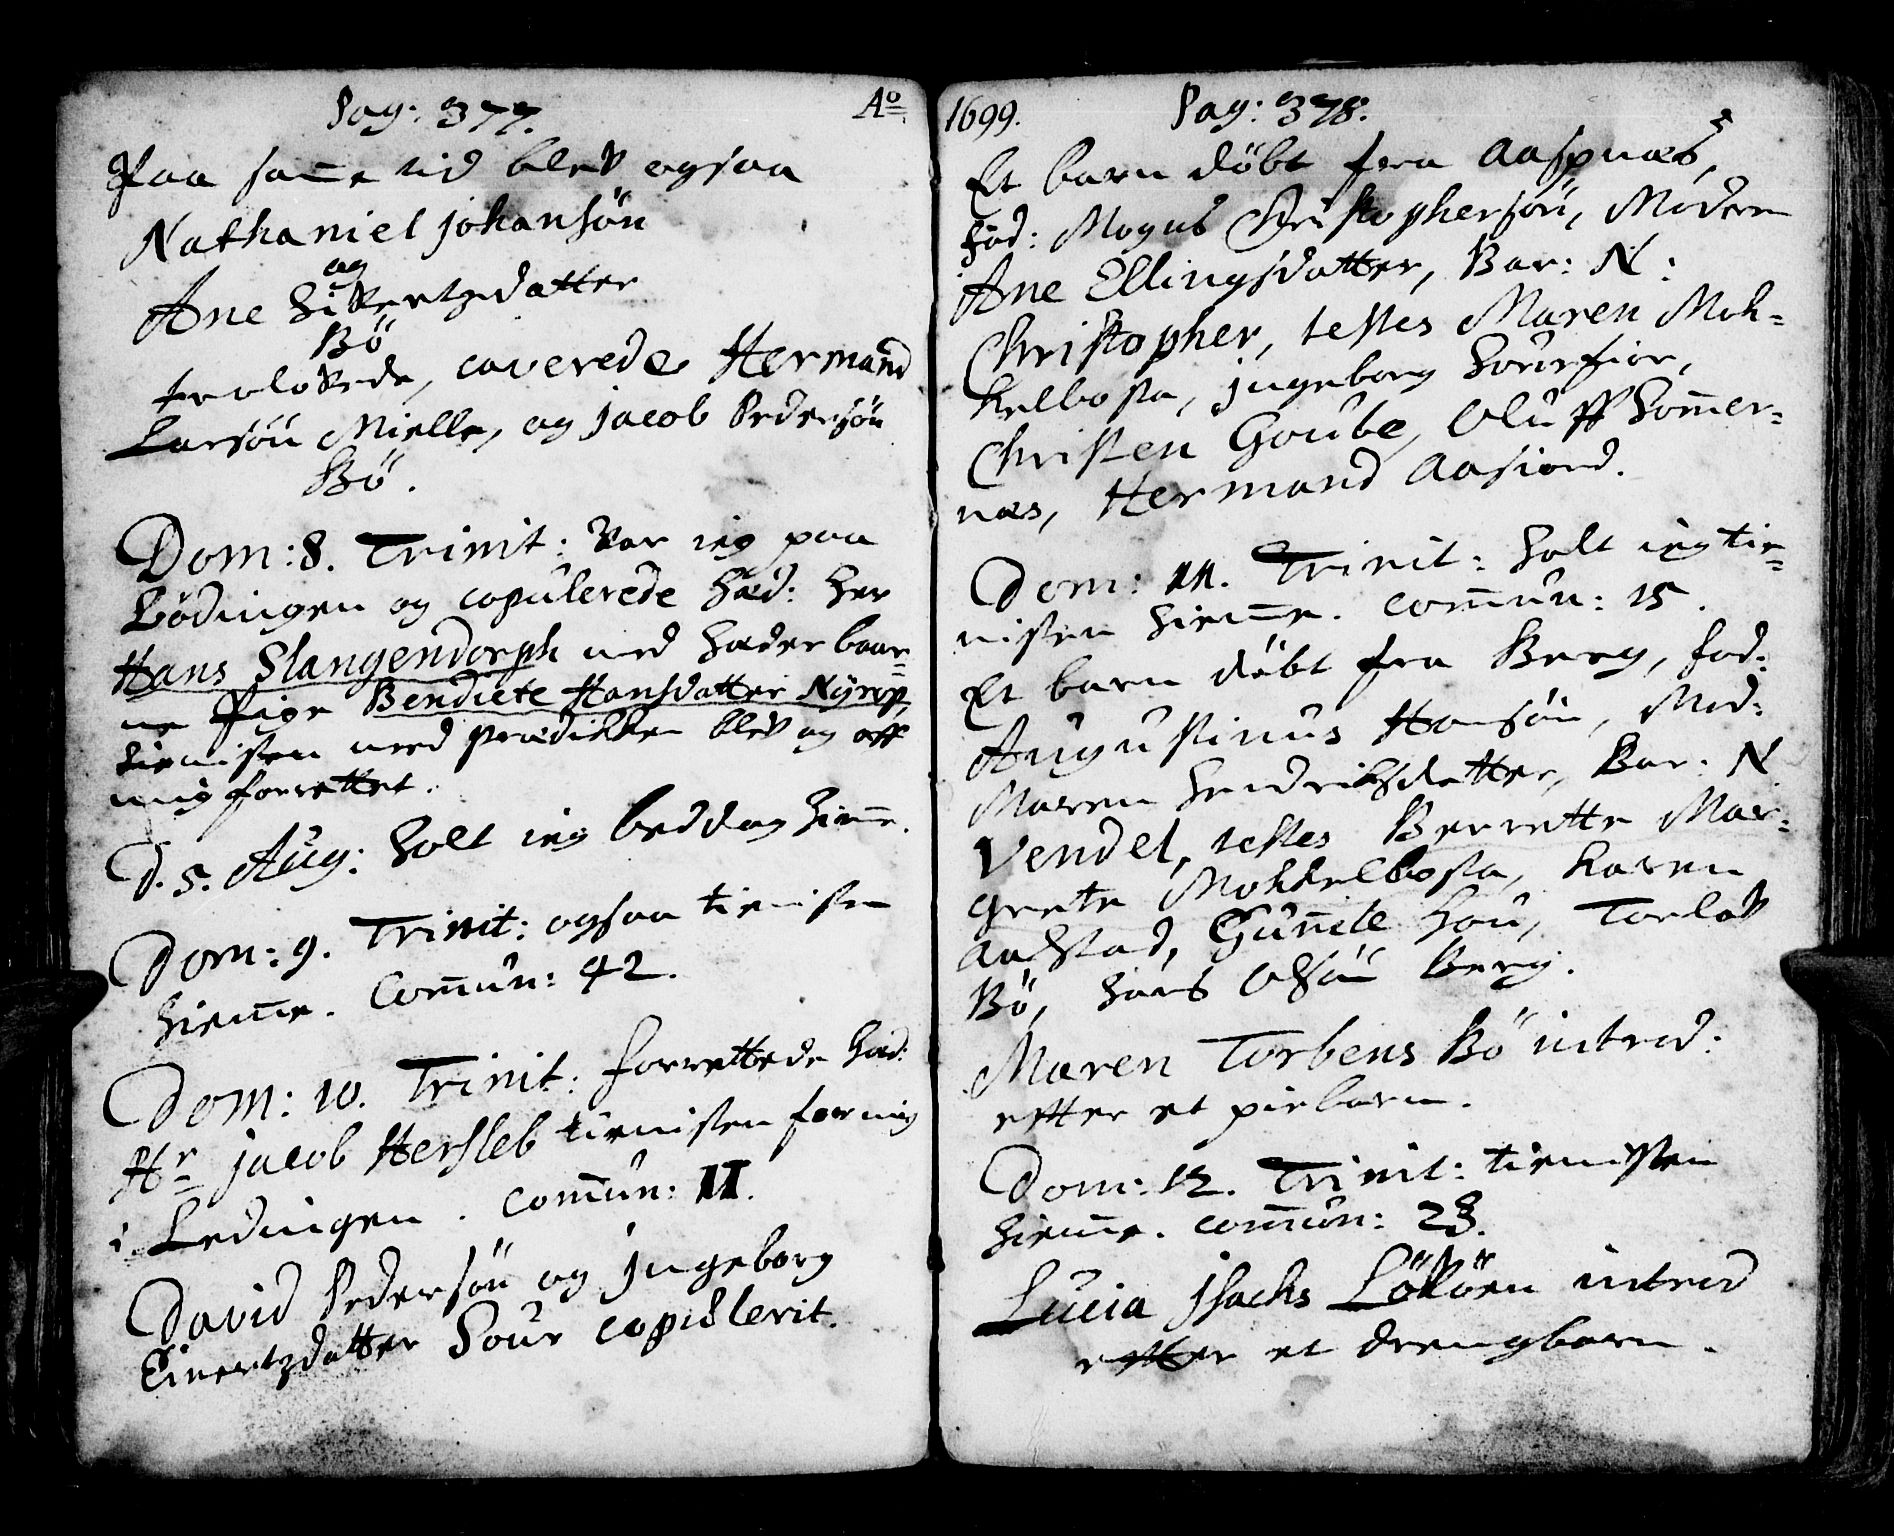 Pag: 377. Ao
Paa same tid blev ogsaa
Nathaniel Johansøn
og
Ane Sivertzdatter
Bö
trolovede, caverede Hermand
Larsøn Mielle, og Jacob Pedersøn
Bö.
Dom: 8. Trinit: var ieg paa
Lödingen og copulerede Hæd: Her
Hans Slangendorph med Hæderbaar=
ne Pige Bendicte Hansdatter Nyrop,
tienisten med prædikken blev og aff
mig forrettet.
D. 5. Aug: holt ieg beddag hieme.
Dom: 9. Trinit: ogsaa tienisten
hieme. Comun: 42.
Dom: 10. Trinit: forrettede Hæd:
Hr Jacob Hersleb tienisten for mig
i Ledingen. Comun: 11.
David Pedersøn og Ingeborg
Einertzdatter Sour copulerit.
1699. Pag: 378.
Et barn döbt fra Aaspnæs,
Fad: Mogns Christophersøn, Moderen
Ane Ellingsdatter, Bar: N:
Christopher, testes Maren Moh=
kelbosta, Ingeborg
Christen Goube, Oluff Sommer=
næs, Hermand Aasiord.
Dom: 11. Trinit: holt ieg tie=
nisten hieme. Comun: 15.
Et barn döbt fra Berg, fad:
Augustinus Hansøn, Mod:
Maren Hendrichsdatter, Bar: N
Vendel, testes Berrette Mar=
grete Mohkelbosta, Karen
Aalstad, Gunnile Hou, Torlov
Bö, Hans Olsøn Berg.
Maren Torbens Bö introd:
effter et piebarn.
Dom: 12. Trinit: tienisten
hieme. Comun: 23.
Lucia Isachs Lövöen introd
effter et drengbarn.